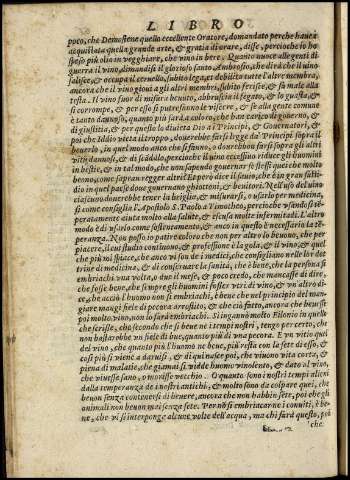 LIBRO
poco, che Demostene quello eccellente Oratore, domandato perche haueа
acquistata quella grande arte, & gratia di orare, disse, percioche io ho
speso più olio in vegghiare, che vino in bere. Quanto nuoce alle genti di
guerra il vino, dimandisi il glorioso santo Ambrosio, che dirà che il uino
salisce, & occupa il ceruello, subito lega, et debilita tutte l'altre membra,
ancora che il vino gioua a gli altri membri, subito ferisce, & fà male alla
testa. Il vino fuor di misura beuuto, abbruscia il fegato, & lo guasta, &
si corrompe, & per esso si putrefanno le viscere, & se alla gente comune
è tanto dannoso, quanto più sarà a coloro, che han carico di gouerno, &
di giustitia, & per questo lo diuieta Dio a i Principi, & Gouernatori, &
poi che Iddio vieta il troppo, douerebbe farsi legge da' Principi sopra il
beuerlo, in quel modo anco che si fanno, o dourebbon farsi sopra gli altri
vitij dannosi, & di scādalo, percioche il uino eccessiuo riduce gli huomini
in bestie, & in tal modo, che non sapendo gouernar se stessi
bono, come sapran regger altri? Et però dice il sauio, che è in gran fasti-
dio in quel paese doue gouernano ghiottoni, & beuitori. Nell'uso del uino
ciascuno douerebbe tener la briglia, & misurarsi, o usarlo per medicina,
si come consiglia l'Apostolo S. Paolo a Timotheo, percioche vsando si tē-
peratamente aiuta molto alla salute, & escusa molte infermitadi. L'altro
modo è di usarlo come sostentamento, & anco in questo è necessaria la tē-
peranza. Non posso io patire coloro che non per altro lo beuono, che per
piacere, il cui studio continuo, & professione è la gola, & il vino, & quel
che più mi spiace, che anco vi son de i medici, che consigliano nelle lor dot
trine di medicina, & di conseruare la sanità, che è bene, che la persona si
embriachi vna volta, o due il mese, & poco credo, che mancasse di dire,
che fosse bene, che sempre gli huomini fosser vtri di vino, & vn altro di-
ce, che acciò l'huomo non si embriachi, è bene che nel principio del man-
giare mangi fiele di pecora arrostito, & che ciò fatto, ancora che beuesse
poi molto vino, non lo farà embriachi. Si ingannò molto Filonio in quello
che scrisse, che secondo che si beue ne i tempi nostri, tengo per certo, che
non bastarebbe vn fiele di bue, quanto più di vna pecora. E vn vitio quel
del vino, che quanto più l'huomo ne beue, più resta con la sete di esso, &
così più si viene a dannarsi, & di qui nasce poi, che viuono vita corta, &
piena di malatie, che giamai si vidde huomo vinolento, & dato al vino,
che viuesse sano, o morisse vecchio. O quanto sono i nostri tempi alieni
dalla temperanza de i nostri antichi, & molto sono da colpare quei, che
beuon senza contenersi di beuere, ancora che non habbin sete, poi che gli
animali non beuon mai senza sete. Per nō si embriacar ne i conuiti, è be-
ne, che vi si interponga alcune volte dell'acqua, ma chi farà questo, poi
che